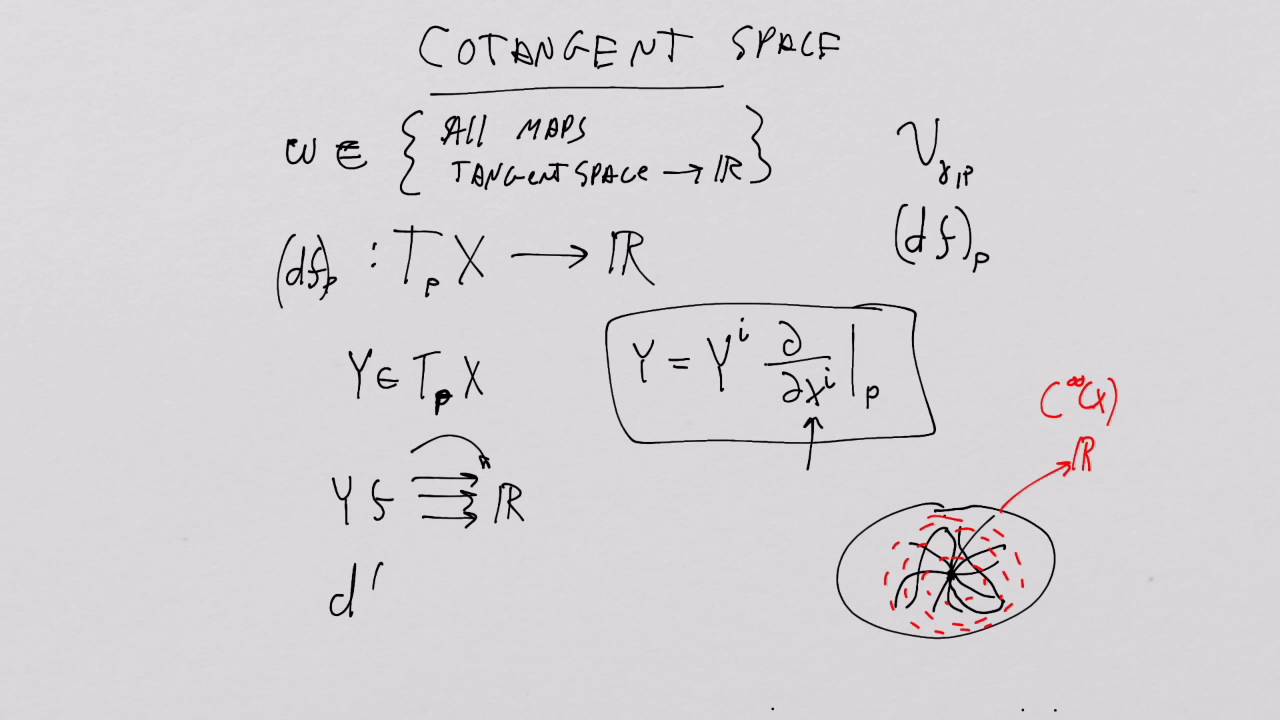 COTANGENT SPACE
ω ∈ { All MAPS
TANGENT SPACE → ℝ }
V_γ,p
(df)_p : T_p X → ℝ
(df)_p
Y ∈ T_p X
Y = Y^i ∂/∂x^i |_p
C^∞(X)
ℝ
Y f → ℝ
d